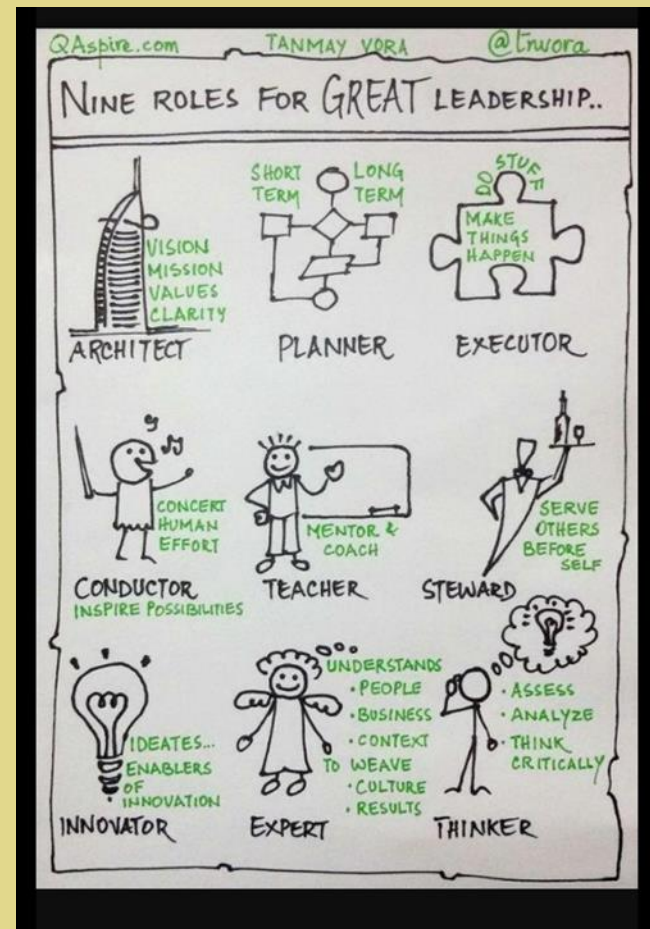 QAspire.com TANMAY VORA @tnvora
NINE ROLES FOR GREAT LEADERSHIP..
VISION
MISSION
VALUES
CLARITY
ARCHITECT
SHORT TERM
LONG TERM
PLANNER
DO STUFF
MAKE
THINGS
HAPPEN
EXECUTOR
CONCERT
HUMAN
EFFORT
CONDUCTOR
INSPIRE POSSIBILITIES
MENTOR &
COACH
TEACHER
SERVE
OTHERS
BEFORE
SELF
STEWARD
IDEATES...
ENABLERS
OF
INNOVATION
INNOVATOR
UNDERSTANDS
• PEOPLE
• BUSINESS
• CONTEXT
TO WEAVE
• CULTURE
• RESULTS
EXPERT
• ASSESS
• ANALYZE
• THINK
CRITICALLY
THINKER